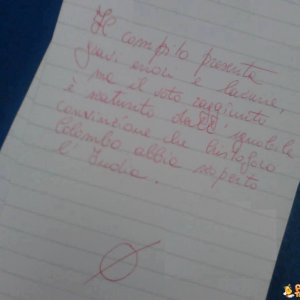 Il compito presenta
gravi errori e lacune,
ma il voto raggiunto
è maturato dall'ignobile
convinzione che Cristoforo
Colombo abbia scoperto
l'India.